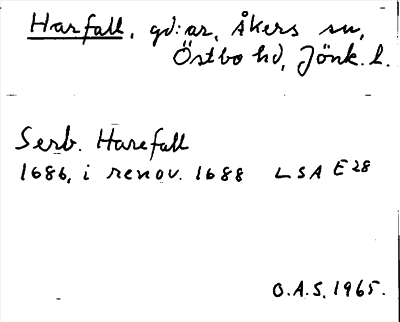 Harfall, gd:ar, Åkers sn,
Östbo hd, Jönk. l.
Serb. Harefall
1686, i renov. 1688 LSA E28
O.A.S. 1965.